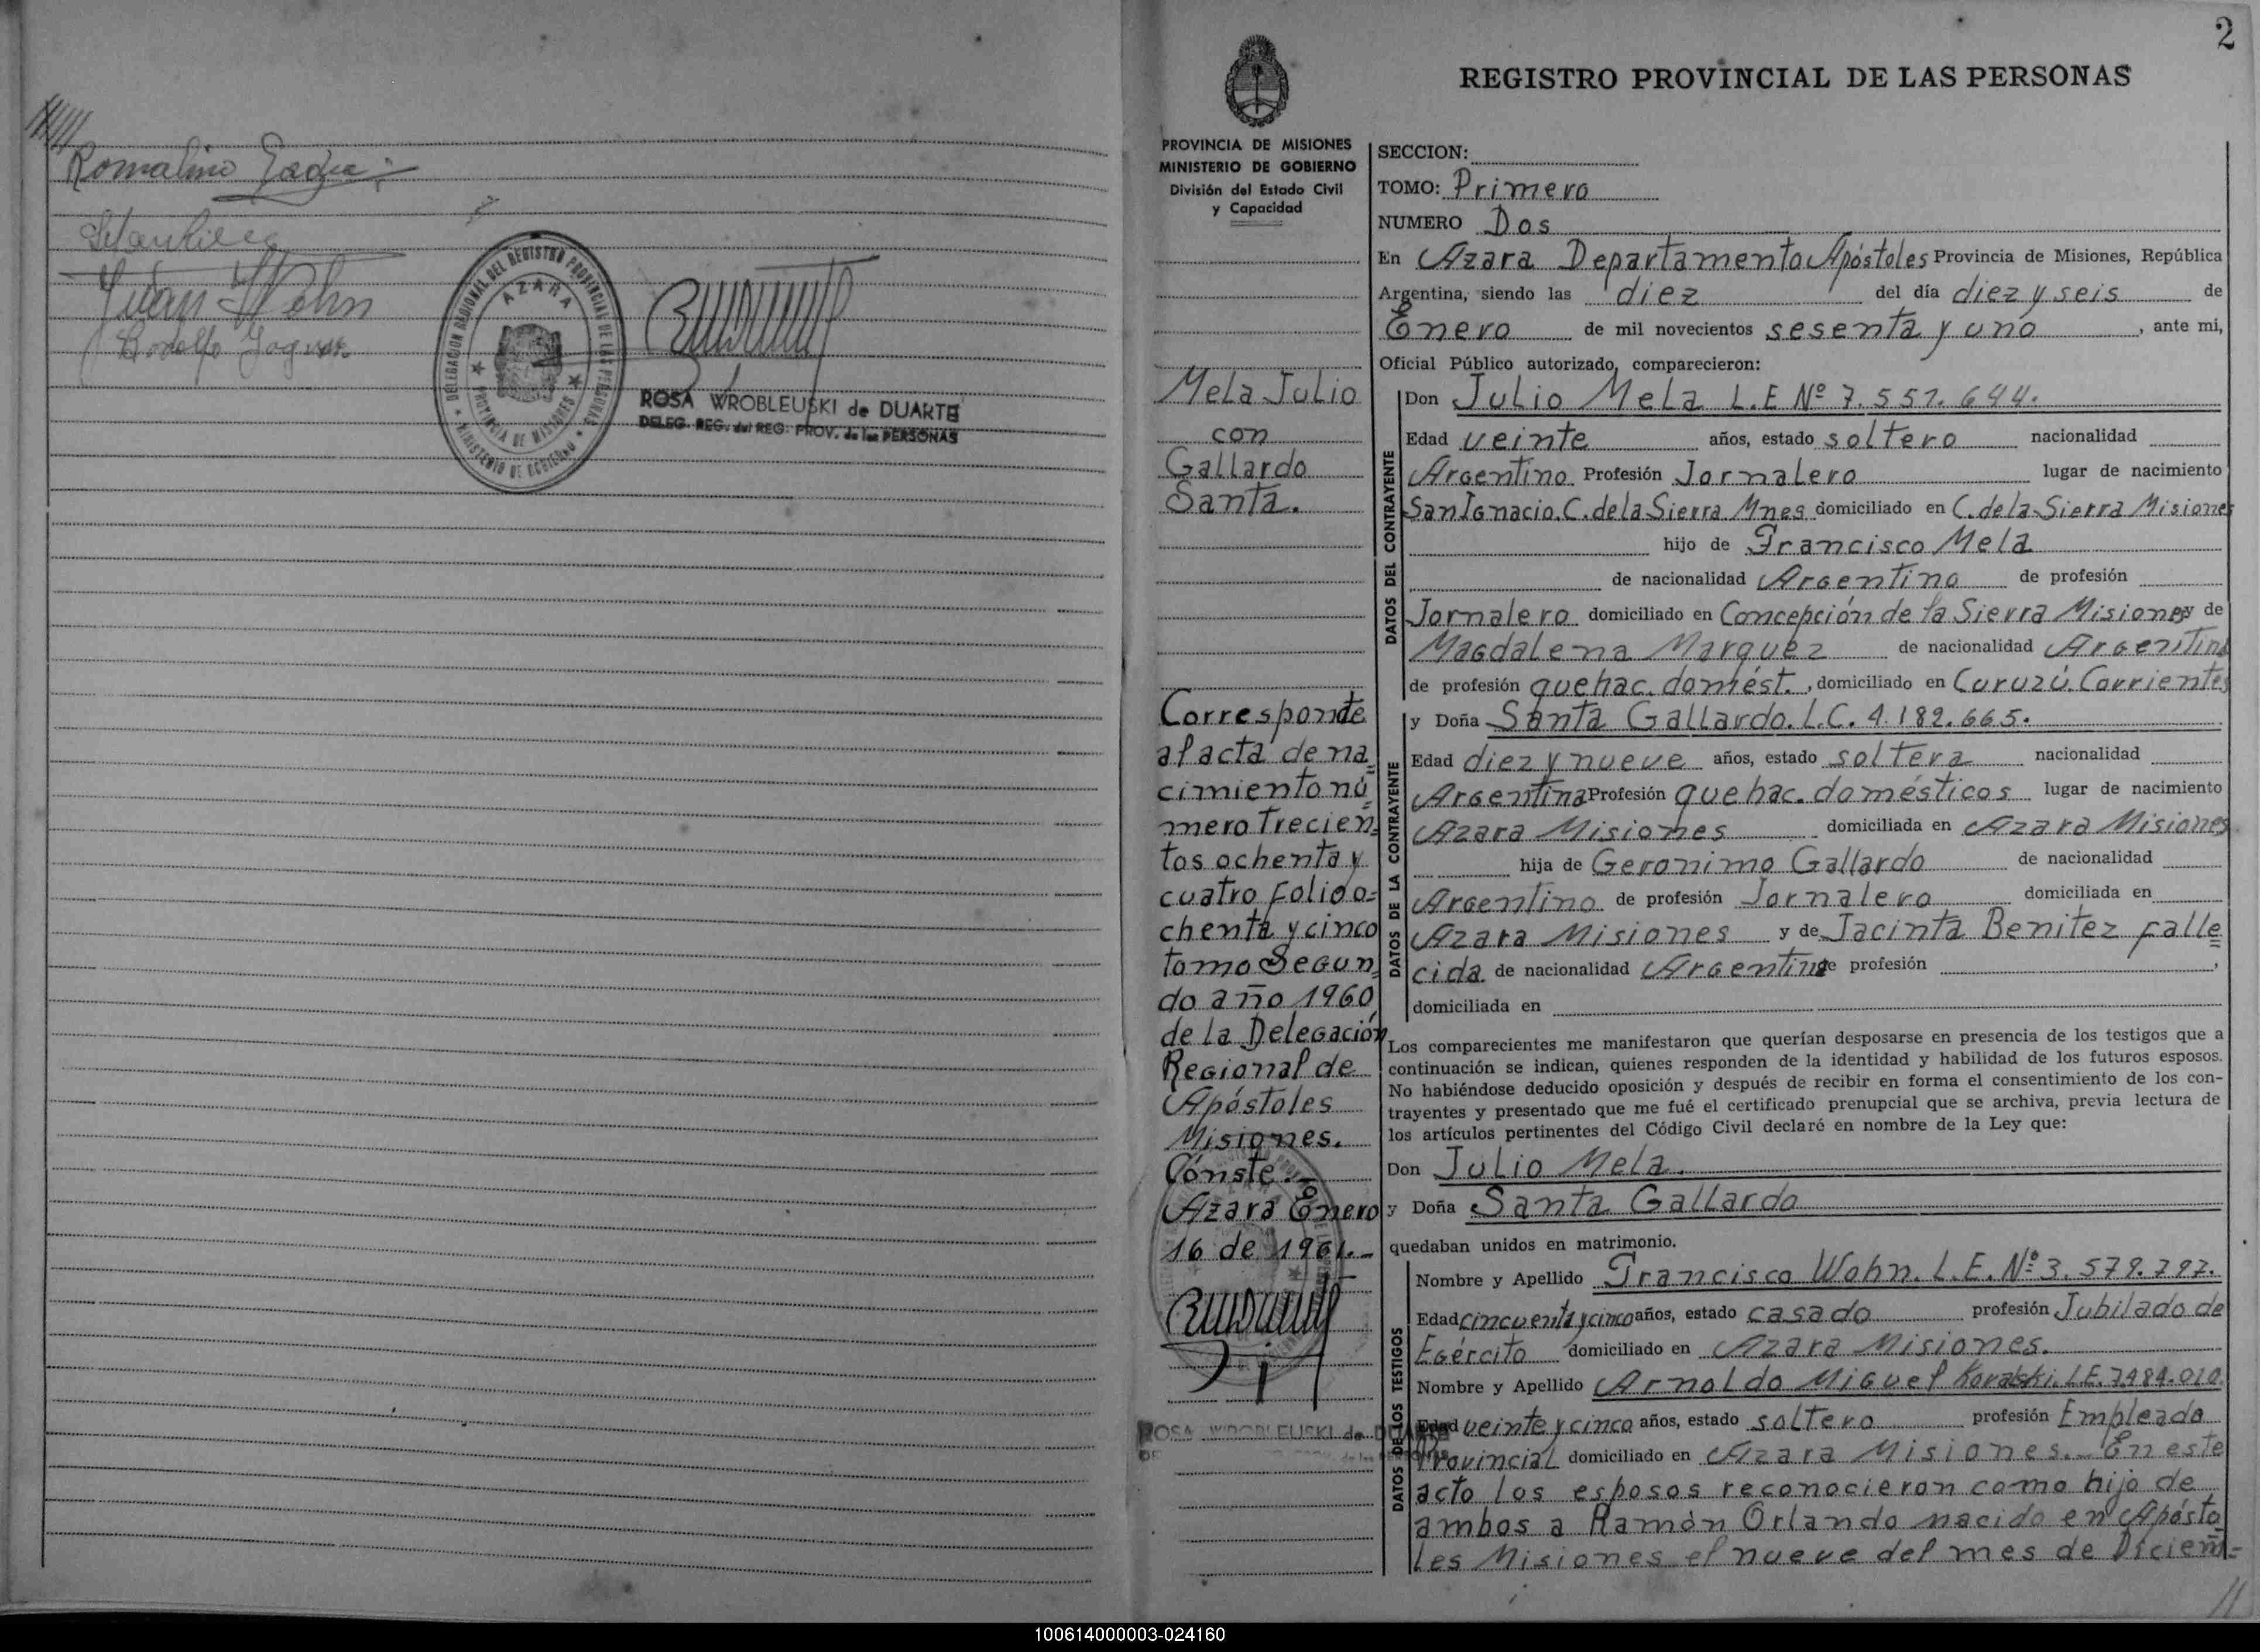 Romalino
Juan Wohn
Rodolfo
DELEGACION REGIONAL DEL REGISTRO PROVINCIAL DE LAS PERSONAS
AZARA
PROVINCIA DE MISIONES
MINISTERIO DE GOBIERNO
ROSA WROBLEUSKI de DUARTE
DELEG. REG. del REG. PROV. de las PERSONAS
2
REGISTRO PROVINCIAL DE LAS PERSONAS
PROVINCIA DE MISIONES
MINISTERIO DE GOBIERNO
División del Estado Civil
y Capacidad
Mela Julio
con
Gallardo
Santa.
Corresponde
al acta de na=
cimiento nú=
mero Trecien=
tos ochenta y
cuatro Folio o=
chenta y cinco
tomo Segun=
do año 1960
de la Delegación
Regional de
Apóstoles
Misiones.
Cónste.-
Azara Enero
16 de 1961.-
ROSA WROBLEUSKI de DUARTE
SECCION:
TOMO: Primero
NUMERO Dos
En Azara Departamento Apóstoles Provincia de Misiones, República
Argentina, siendo las diez del día diez y seis de
Enero de mil novecientos sesenta y uno, ante mi,
Oficial Público autorizado, comparecieron:
DATOS DEL CONTRAYENTE
Don Julio Mela L.E Nº 7.557.644.
Edad veinte años, estado soltero nacionalidad
Argentino Profesión Jornalero lugar de nacimiento
San Ignacio. C. de la Sierra Mnes domiciliado en C. de la Sierra Misiones
hijo de Francisco Mela
de nacionalidad Argentino de profesión
Jornalero domiciliado en Concepción de la Sierra Misiones y de
Magdalena Marquez de nacionalidad Argentina
de profesión quehac. domést., domiciliado en Curuzú. Corrientes
DATOS DE LA CONTRAYENTE
y Doña Santa Gallardo. L.C. 4.182.665.
Edad diez y nueve años, estado soltera nacionalidad
Argentina Profesión quehac. domésticos lugar de nacimiento
Azara Misiones domiciliada en Azara Misiones
hija de Geronimo Gallardo de nacionalidad
Argentino de profesión Jornalero domiciliada en
Azara Misiones y de Jacinta Benitez falle=
cida de nacionalidad Argentina de profesión ,
domiciliada en
Los comparecientes me manifestaron que querían desposarse en presencia de los testigos que a
continuación se indican, quienes responden de la identidad y habilidad de los futuros esposos.
No habiéndose deducido oposición y después de recibir en forma el consentimiento de los con-
trayentes y presentado que me fué el certificado prenupcial que se archiva, previa lectura de
los artículos pertinentes del Código Civil declaré en nombre de la Ley que:
Don Julio Mela.
y Doña Santa Gallardo
quedaban unidos en matrimonio.
DATOS DE LOS TESTIGOS
Nombre y Apellido Francisco Wohn. L.E. Nº 3.579.797.
Edad cincuenta y cinco años, estado casado profesión Jubilado de
Egército domiciliado en Azara Misiones.
Nombre y Apellido Arnoldo Miguel Kovalski. L.E. 7.484.010.
Edad veinte y cinco años, estado soltero profesión Empleado
Provincial domiciliado en Azara Misiones. En este
acto los esposos reconocieron como hijo de
ambos a Ramón Orlando nacido en Apósto=
les Misiones el nueve del mes de Diciem=
100614000003-024160